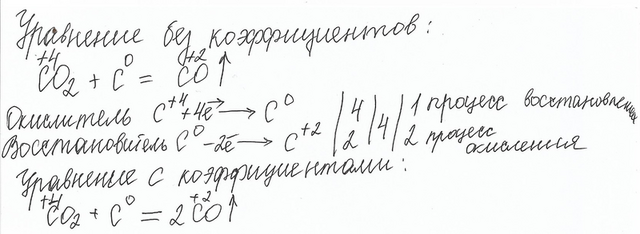 Уравнение без коэффициентов:
+4 0 +2
CO2 + C = CO↑
Окислитель C+4 +4e → C0 | 4 | 4 | 1 процесс восстановления
Восстановитель C0 -2e → C+2 | 2 | | 2 процесс окисления
Уравнение с коэффициентами:
+4 0 +2
CO2 + C = 2CO↑